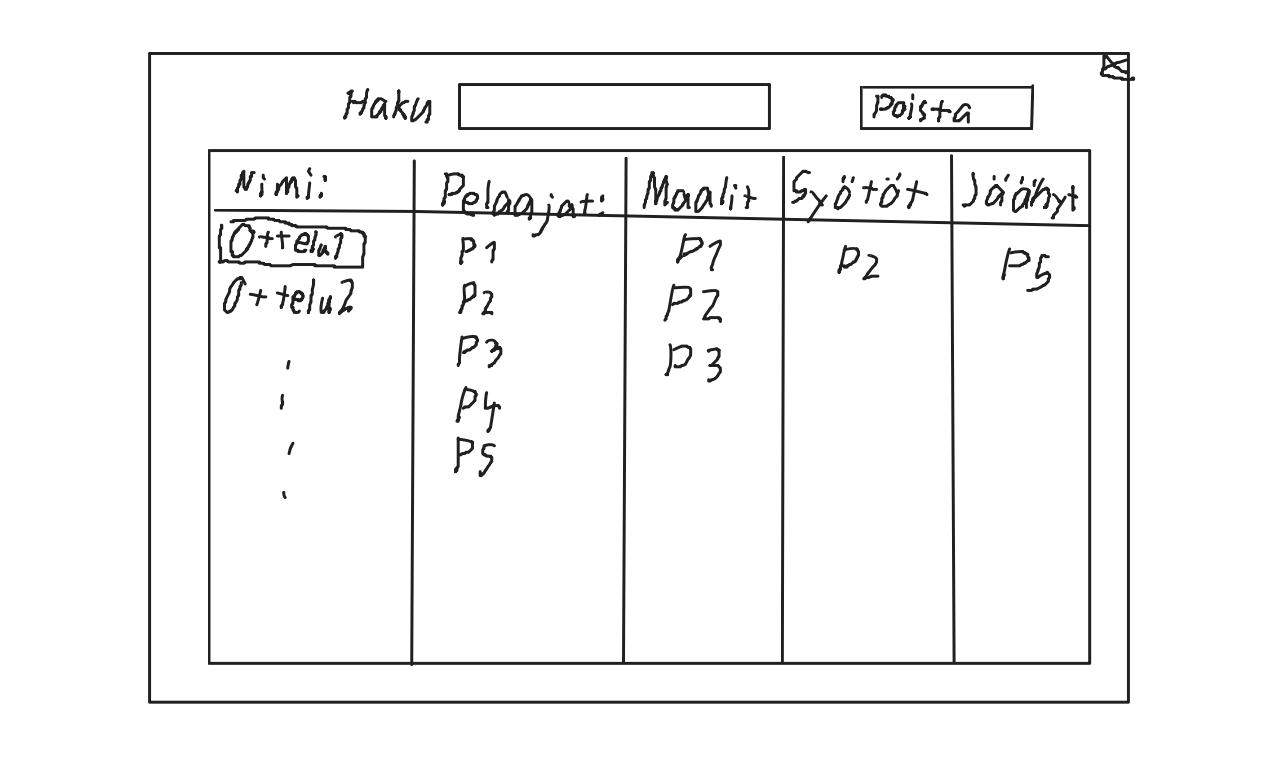 Haku
Poista
Nimi: Pelaajat: Maalit Syötöt Jäähyt
Ottelu1 P1 P1 P2 P5
Ottelu2 P2 P2
P3 P3
P4
P5